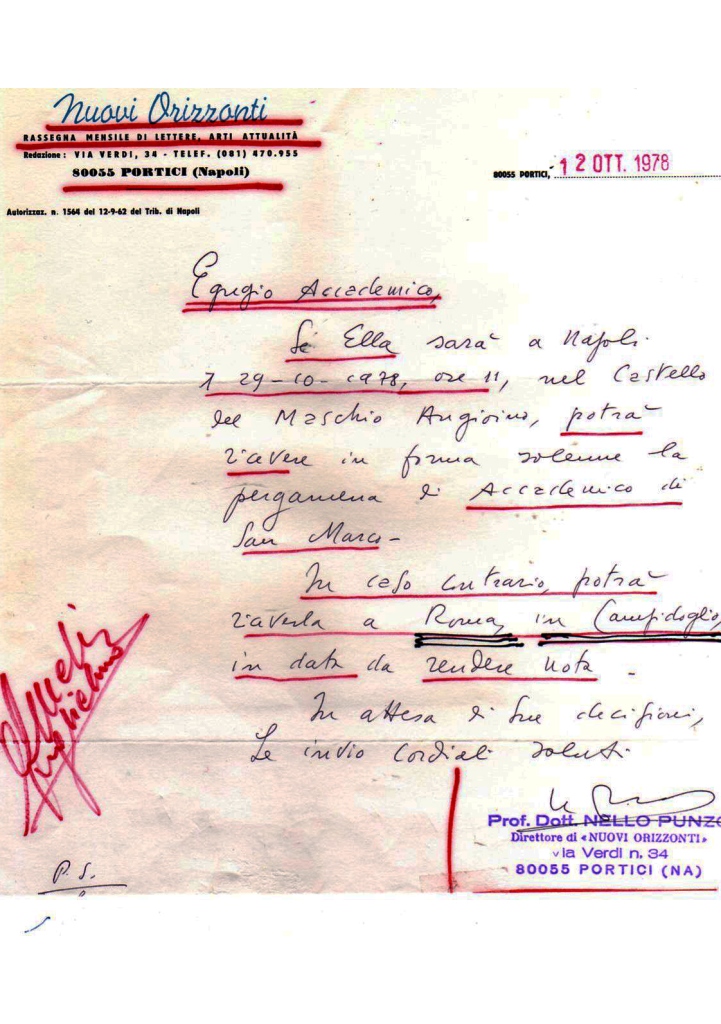 Nuovi Orizzonti
RASSEGNA MENSILE DI LETTERE, ARTI ATTUALITÀ
Redazione: VIA VERDI, 34 - TELEF. (081) 470.955
80055 PORTICI (Napoli)
Autorizzaz. n. 1564 del 12-9-62 del Trib. di Napoli
80055 PORTICI, 12 OTT. 1978
Egregio Accademico,
Se Ella sarà a Napoli
il 29-10-1978, ore 11, nel Castello
del Maschio Angioino, potrà
riavere in forma solenne la
pergamena di Accademico di
San Marco-
In caso contrario, potrà
riaverla a Roma, in Campidoglio,
in data da rendere nota.
In attesa di Sue decisioni,
Le invio cordiali saluti
Prof. Dott. NELLO PUNZO
Direttore di «NUOVI ORIZZONTI»
via Verdi n. 34
80055 PORTICI (NA)
P.S.